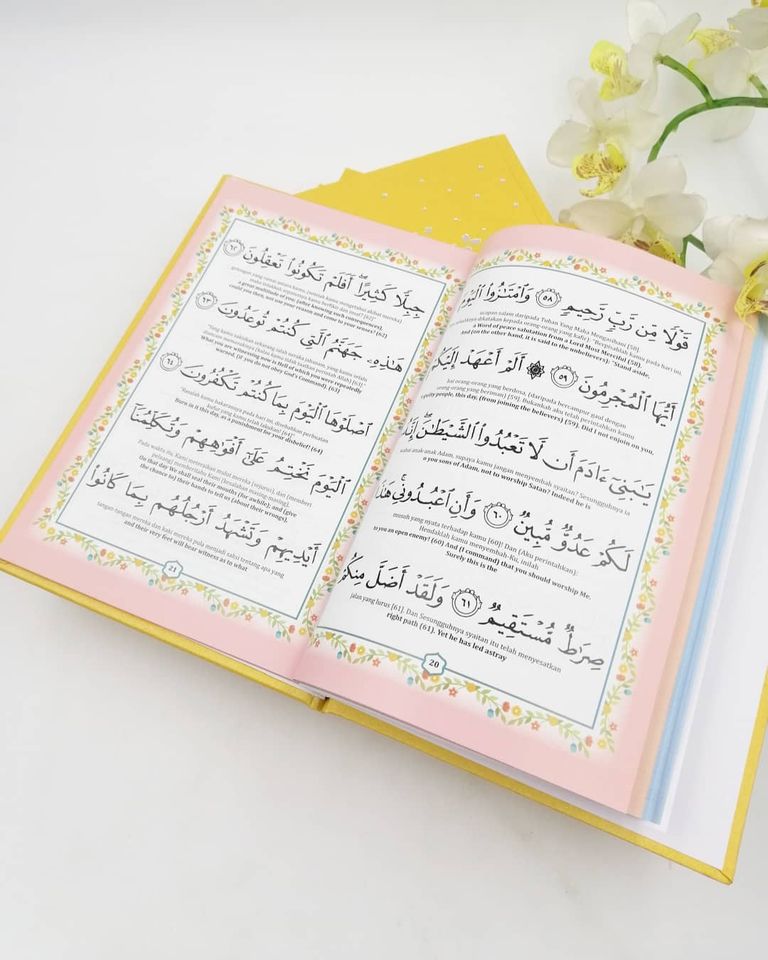 قَوْلًا مِّن رَّبٍّ رَّحِيمٍ ٥٨ وَٱمْتَٰزُوا۟ ٱلْيَوْمَ
ucapan salam daripada Tuhan Yang Maha Mengasihani [58].
dikatakan kepada orang-orang yang kafir): "Berpisahlah kamu pada hari ini,
a Word of peace salutation from a Lord Most Merciful (58).
And (on the other hand, it is said to the unbelievers): "Stand aside,
أَيُّهَا ٱلْمُجْرِمُونَ ٥٩ ۞ أَلَمْ أَعْهَدْ إِلَيْكُمْ
hai orang-orang yang berdosa, (daripada bercampur gaul dengan
orang-orang yang beriman) [59]. Bukankah aku telah perintahkan kamu
guilty people, this day, (from joining the believers) (59). Did I not enjoin on you,
يَٰبَنِىٓ ءَادَمَ أَن لَّا تَعْبُدُوا۟ ٱلشَّيْطَٰنَ ۖ إِنَّهُۥ
wahai anak-anak Adam, supaya kamu jangan menyembah syaitan? Sesungguhnya ia
you sons of Adam, not to worship Satan? Indeed he is
لَكُمْ عَدُوٌّ مُّبِينٌ ٦٠ وَأَنِ ٱعْبُدُونِى ۚ هَٰذَا
musuh yang nyata terhadap kamu [60]! Dan (Aku perintahkan):
Hendaklah kamu menyembah-Ku, inilah
to you an open enemy! (60) And (I command) that you should worship Me.
Surely this is the
صِرَٰطٌ مُّسْتَقِيمٌ ٦١ وَلَقَدْ أَضَلَّ مِنكُمْ
jalan yang lurus [61]. Dan Sesungguhnya syaitan itu telah menyesatkan
right path (61). Yet he has led astray
20
جِبِلًّا كَثِيرًا ۖ أَفَلَمْ تَكُونُوا۟ تَعْقِلُونَ ٦٢
golongan yang ramai antara kamu, (setelah kamu mengetahui akibat mereka)
maka tidakkah sepatutnya kamu berfikir dan insaf? [62]
a great multitude of you, (after knowing such consequences),
could you then, not use your reason and come to your senses? (62)
هَٰذِهِۦ جَهَنَّمُ ٱلَّتِى كُنتُمْ تُوعَدُونَ ٦٣
"Yang kamu saksikan sekarang ialah neraka jahanam, yang kamu selalu
diancam memasukinya (kalau kamu tidak taatkan perintah Allah) [63].
What you are witnessing now is Hell of which you were repeatedly
warned, (if you do not obey God's Command). [63]
ٱصْلَوْهَا ٱلْيَوْمَ بِمَا كُنتُمْ تَكْفُرُونَ ٦٤
"Rasalah kamu bakarannya pada hari ini, disebabkan perbuatan
kufur yang kamu telah lakukan! [64]"
Burn in it this day, as a punishment for your disbelief! (64)
ٱلْيَوْمَ نَخْتِمُ عَلَىٰٓ أَفْوَٰهِهِمْ وَتُكَلِّمُنَآ
Pada waktu itu Kami meteraikan mulut mereka (sejurus), dan (memberi
peluang) memberitahu Kami (kesalahan masing-masing),
On that day We shall seal their mouths (for awhile); and (give
the chance to) their hands to tell us (about their wrongs),
أَيْدِيهِمْ وَتَشْهَدُ أَرْجُلُهُم بِمَا كَانُوا۟
tangan-tangan mereka dan kaki mereka pula menjadi saksi tentang apa yang
and their very feet will bear witness as to what
21